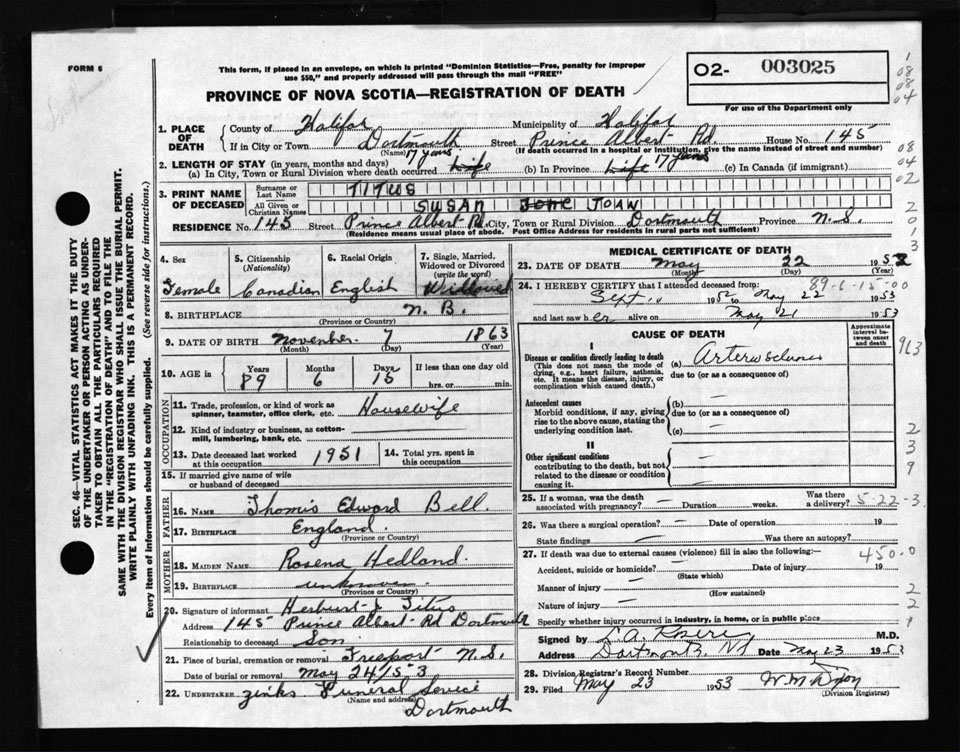 FORM 6
This form, if placed in an envelope, on which is printed "Dominion Statistics—Free, penalty for improper
use $50," and properly addressed will pass through the mail "FREE"
PROVINCE OF NOVA SCOTIA—REGISTRATION OF DEATH
O2- 003025
For use of the Department only
1. PLACE OF DEATH
County of Halifax Municipality of Halifax
If in City or Town Dartmouth Street Prince Albert Rd. House No. 145
(Name) (If death occurred in a hospital or institution, give the name instead of street and number)
2. LENGTH OF STAY (in years, months and days) 17 years 17 years
(a) In City, Town or Rural Division where death occurred Life (b) In Province Life (c) In Canada (if immigrant)
3. PRINT NAME OF DECEASED
Surname or Last Name TITUS
All Given or Christian Names SUSAN JOAN
RESIDENCE No. 145 Street Prince Albert Rd. City, Town or Rural Division Dartmouth Province N.S.
(Residence means usual place of abode. Post Office Address for residents in rural parts not sufficient)
4. Sex Female
5. Citizenship (Nationality) Canadian
6. Racial Origin English
7. Single, Married, Widowed or Divorced (write the word) Widowed
8. BIRTHPLACE N.B.
(Province or Country)
9. DATE OF BIRTH November 7 1863
(Month) (Day) (Year)
10. AGE in Years 89 Months 6 Days 15 If less than one day old hrs. or min.
OCCUPATION
11. Trade, profession, or kind of work as spinner, teamster, office clerk, etc. Housewife
12. Kind of industry or business, as cotton-mill, lumbering, bank, etc.
13. Date deceased last worked at this occupation 1951
14. Total yrs. spent in this occupation
15. If married give name of wife or husband of deceased
FATHER
16. NAME Thomis Edward Bell.
17. BIRTHPLACE England.
(Province or Country)
MOTHER
18. MAIDEN NAME Rosena Hedland.
19. BIRTHPLACE unknown
(Province or Country)
20. Signature of informant Herburt J Titus
Address 145 Prince Albert Rd Dartmouth
Relationship to deceased Son
21. Place of burial, cremation or removal Freeport N.S.
Date of burial or removal May 24/53
22. UNDERTAKER Zinks Funeral Service
(Name and address)
Dartmouth
MEDICAL CERTIFICATE OF DEATH
23. DATE OF DEATH May 22 1953
(Month) (Day) (Year)
89-6-15-00
24. I HEREBY CERTIFY that I attended deceased from:
Sept. 1952 to May 22 1953
and last saw her alive on May 21 1953
CAUSE OF DEATH
Approximate interval between onset and death
I
Disease or condition directly leading to death
(This does not mean the mode of dying, e.g., heart failure, asthenia, etc. It means the disease, injury, or complication which caused death.)
(a)
due to (or as a consequence of)
Antecedent causes
Morbid conditions, if any, giving rise to the above cause, stating the underlying condition last.
(b) —
due to (or as a consequence of)
(c) —
II
Other significant conditions
contributing to the death, but not related to the disease or condition causing it.
25. If a woman, was the death associated with pregnancy? — Duration weeks. Was there a delivery? 5-22-3
26. Was there a surgical operation? — Date of operation 19
State findings — Was there an autopsy?
27. If death was due to external causes (violence) fill in also the following:— 450-0
Accident, suicide or homicide? — Date of injury 19
(State which)
Manner of injury —
(How sustained)
Nature of injury —
Specify whether injury occurred in industry, in home, or in public place
Signed by M.D.
Address Dartmouth, NS Date May 23 1953
28. Division Registrar's Record Number
29. Filed May 23 1953
(Division Registrar)
SEC. 46—VITAL STATISTICS ACT MAKES IT THE DUTY
OF THE UNDERTAKER OR PERSON ACTING AS UNDER-
TAKER TO OBTAIN ALL THE PARTICULARS REQUIRED
IN THE "REGISTRATION OF DEATH" AND TO FILE THE
SAME WITH THE DIVISION REGISTRAR WHO SHALL ISSUE THE BURIAL PERMIT.
WRITE PLAINLY WITH UNFADING INK. THIS IS A PERMANENT RECORD.
Every item of information should be carefully supplied. (See reverse side for instructions.)
1
08
08
04
08
04
02
2
0
1
3
963
2
3
9
2
2
1